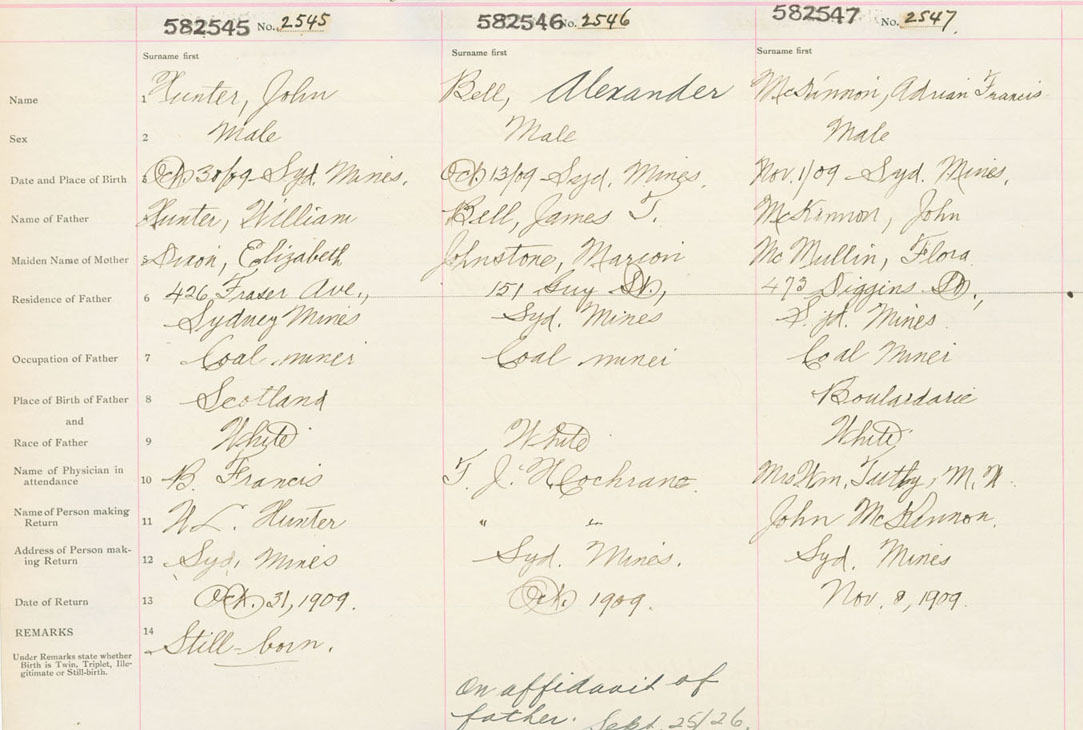 582545 No. 2545 582546 No. 2546 582547 No. 2547
Surname first Surname first Surname first
Name 1 Hunter, John Bell, Alexander McKinnon, Adrian Francis
Sex 2 Male Male Male
Date and Place of Birth Oct. 30/09 Syd. Mines. Oct 13/09 Syd. Mines. Nov. 1/09 Syd. Mines.
Name of Father Hunter, William Bell, James T. McKinnon, John
Maiden Name of Mother 5 Dixon, Elizabeth Johnstone, Marion McMullin, Flora
Residence of Father 6 426 Fraser Ave., 151 Guy St, 473 Diggins St.,
Sydney Mines Syd. Mines Syd. Mines
Occupation of Father 7 Coal miner Coal miner Coal Miner
Place of Birth of Father 8 Scotland Boulardarie
and
Race of Father 9 White White White
Name of Physician in
attendance 10 B. Francis T. J. Cochrane. Mrs Wm. M. N.
Name of Person making
Return 11 W L. Hunter " " John McKinnon.
Address of Person mak-
ing Return 12 Syd. Mines Syd. Mines. Syd. Mines
Date of Return 13 Oct. 31, 1909. Oct. 1909. Nov. 8, 1909.
REMARKS 14 Still-born.
Under Remarks state whether
Birth is Twin, Triplet, Ille-
gitimate or Still-birth.
On affidavit of
father. Sept. 25/26